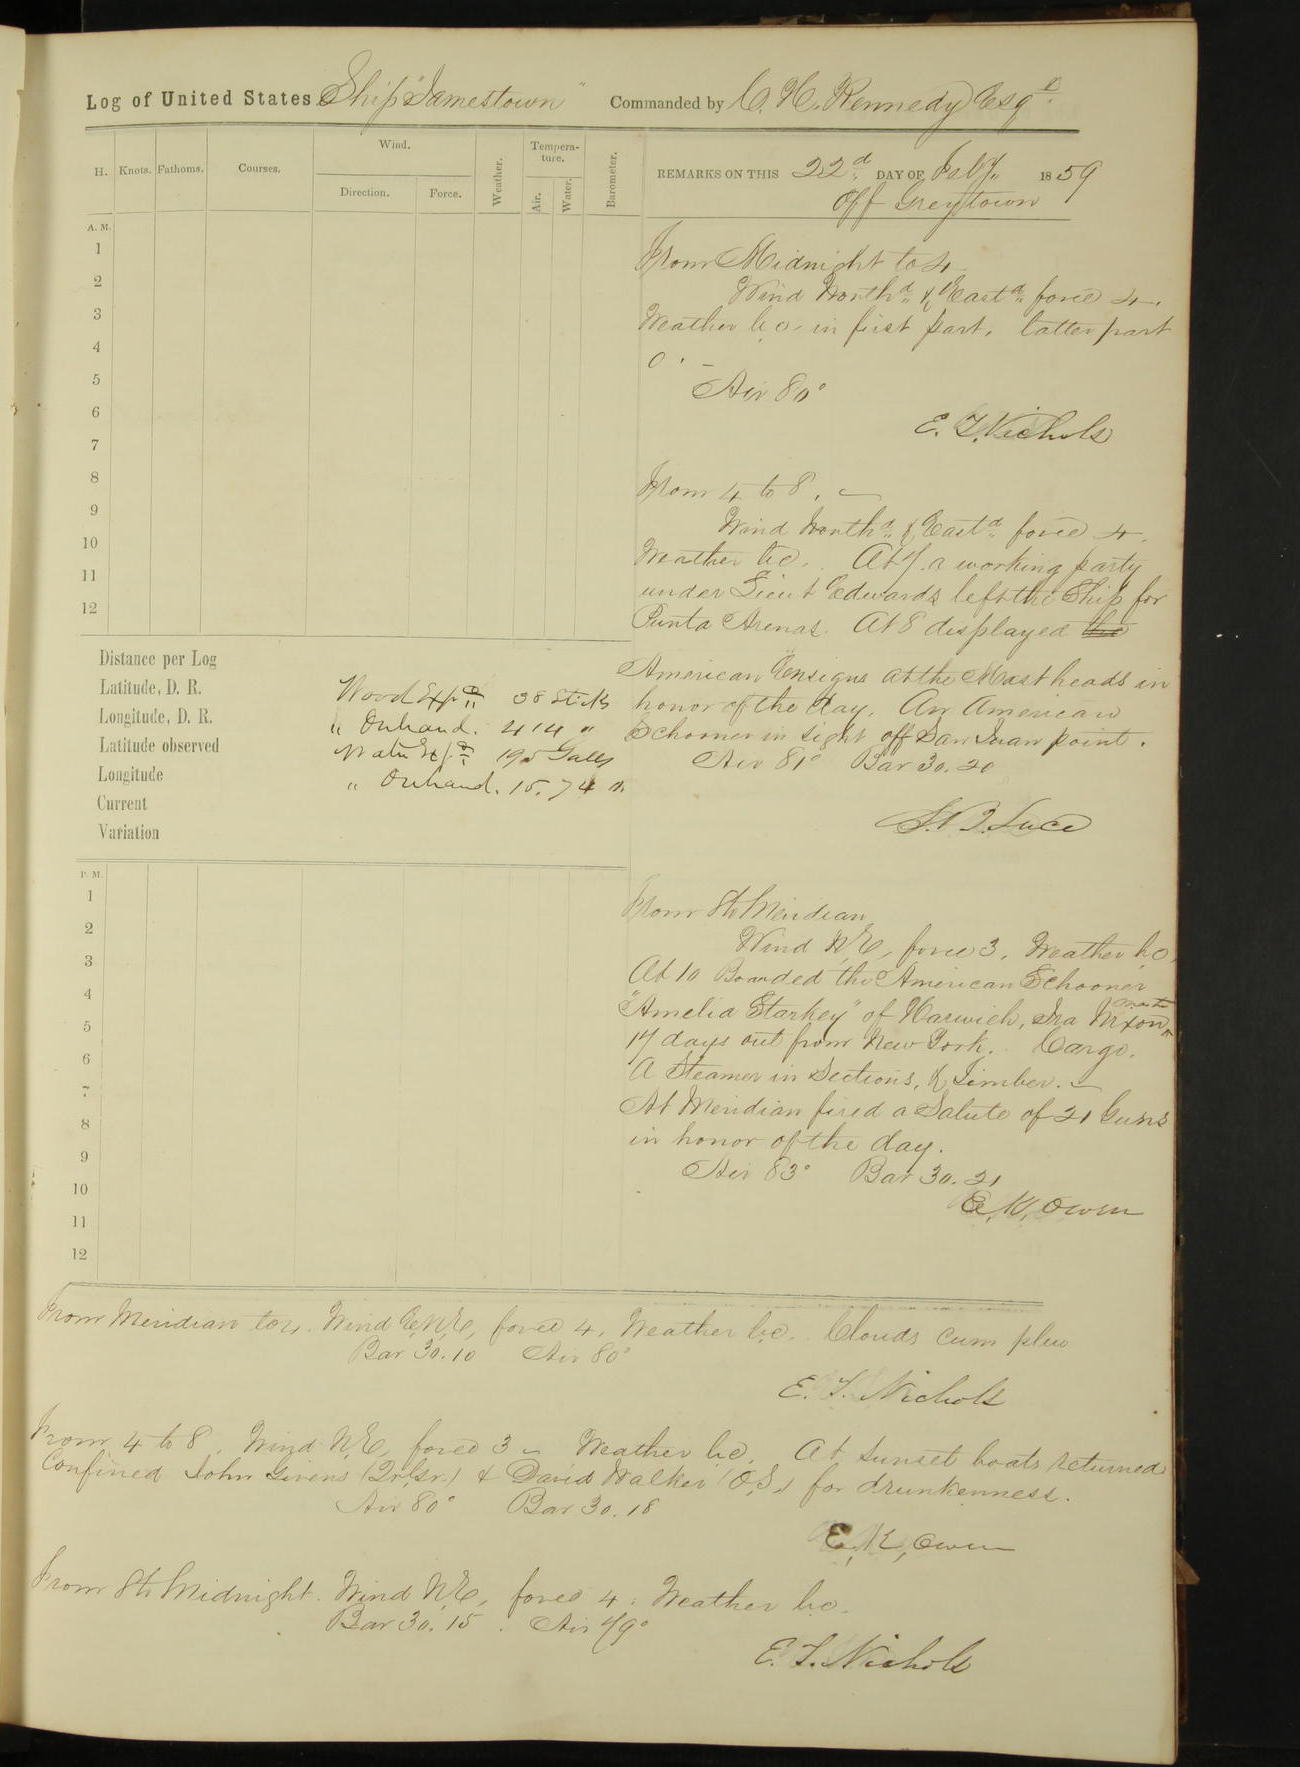 Log of United States Ship "Jamestown" Commanded by C. H. Kennedy Esqr.
H. Knots. Fathoms. Courses. Wind. Direction. Force. Weather. Tempera-ture. Air. Water. Barometer.
REMARKS ON THIS 22d DAY OF Feby. 1859
Off Greytown
A. M.
1
2
3
4
5
6
7
8
9
10
11
12
From Midnight to 4
Wind Northd & Eastd force 4.
Weather b.c. in first part. latter part
o. –
Air 80°
E. T. Nichols
From 4 to 8. –
Wind Northd & Eastd force 4.
Weather b.c. At 7. a working party
under Lieut Edwards left the Ship for
Punta Arenas. At 8 displayed the
American Ensigns at the Mast heads in
honor of the day. An American
Schooner in sight off San Juan point.
Air 81° Bar 30.20
S. B. Luce
Distance per Log
Latitude, D. R.
Longitude, D. R.
Latitude observed
Longitude
Current
Variation
Wood Expd 38 Sticks
" Onhand. 414 "
Water Expd 195 Galls
" Onhand. 15.74
P. M.
1
2
3
4
5
6
7
8
9
10
11
12
From 8 to Meridian
Wind N.E. force 3. Weather b.c.
At 10 Boarded the American Schooner
"Amelia Starkey" of Harwich, Ira Nixon master
17 days out from New York. Cargo.
A Steamer in Sections, & Timber. –
At Meridian fired a Salute of 21 Guns
in honor of the day.
Air 83° Bar 30.21
E. K. Owen
From Meridian to 4. Wind E.N.E, force 4. Weather b.c. Clouds cum
Bar 30.10 Air 80°
E. T. Nichols
From 4 to 8. Wind N.E, force 3 – Weather b.c. At sunset boats returned
Confined John Givens (Qr.Gr.) & David Walker (O.S.) for drunkenness.
Air 80° Bar 30.18
E. K. Owen
From 8 to Midnight. Wind N.E, force 4. Weather b.c.
Bar 30.15. Air 79°
E. T. Nichols